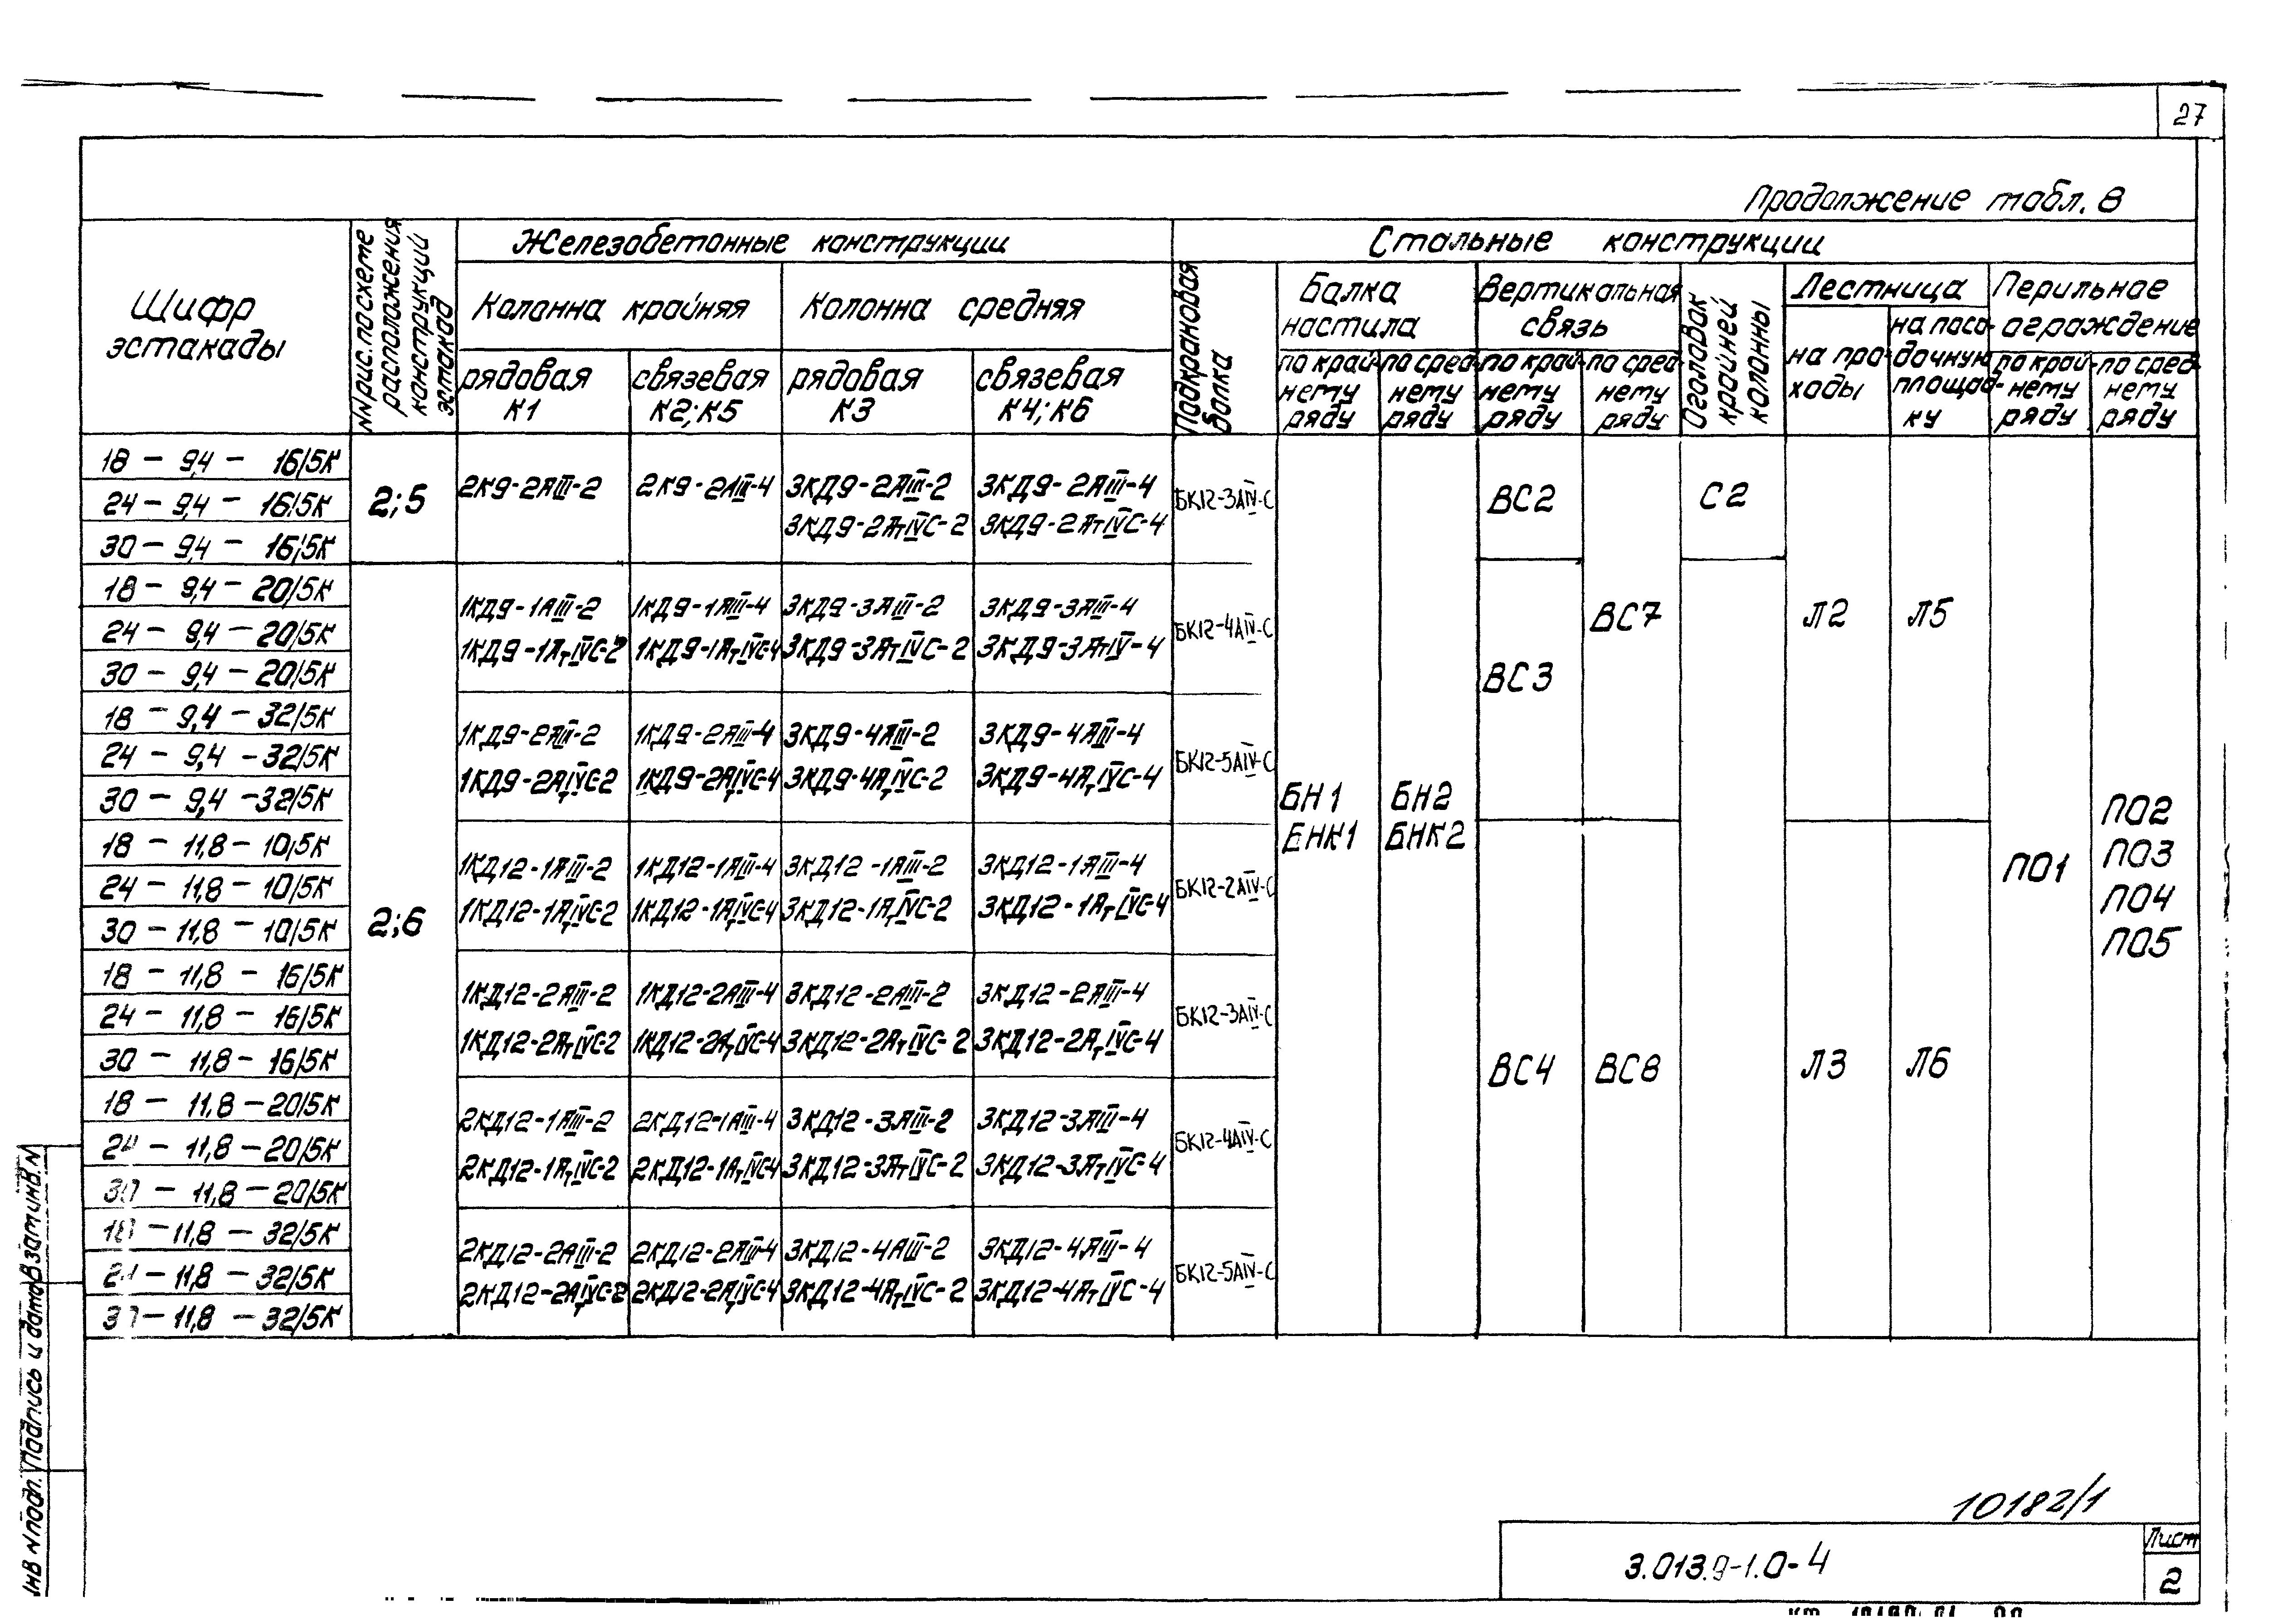 27
Продолжение табл. 8
Шифр эстакады
№№ рис. по схеме расположения конструкций эстакад
Железобетонные конструкции
Стальные конструкции
Колонна крайняя
Колонна средняя
рядовая К1
связевая К2; К5
рядовая К3
связевая К4; К6
Подкрановая балка
Балка настила
по крайнему ряду
по среднему ряду
Вертикальная связь
по крайнему ряду
по среднему ряду
Оголовок крайней колонны
Лестница
на проходы
на посадочную площадку
Перильное ограждение
по крайнему ряду
по среднему ряду
18 – 9,4 – 16/5К
24 – 9,4 – 16/5К
30 – 9,4 – 16/5К
2;5
2К9-2АIII-2 2К9-2АIII-4 3КД9-2АIII-2 3КД9-2АIII-4
3КД9-2АтIVС-2 3КД9-2АтIVС-4
БК12-3АIV-С
ВС2
С2
18 – 9,4 – 20/5К
24 – 9,4 – 20/5К
30 – 9,4 – 20/5К
1КД9-1АIII-2 1КД9-1АIII-4 3КД9-3АIII-2 3КД9-3АIII-4
1КД9-1АтIVС-2 1КД9-1АтIVС-4 3КД9-3АтIVС-2 3КД9-3АтIV-4
БК12-4АIV-С
ВС3
ВС7
Л2
Л5
18 – 9,4 – 32/5К
24 – 9,4 – 32/5К
30 – 9,4 – 32/5К
1КД9-2АIII-2 1КД9-2АIII-4 3КД9-4АIII-2 3КД9-4АIII-4
1КД9-2АтIVС-2 1КД9-2АтIVС-4 3КД9-4АтIVС-2 3КД9-4АтIVС-4
БК12-5АIV-С
БН1
БНК1
БН2
БНК2
18 – 11,8 – 10/5К
24 – 11,8 – 10/5К
30 – 11,8 – 10/5К
2;6
1КД12-1АIII-2 1КД12-1АIII-4 3КД12-1АIII-2 3КД12-1АIII-4
1КД12-1АтIVС-2 1КД12-1АтIVС-4 3КД12-1АтIVС-2 3КД12-1АтIVС-4
БК12-2АIV-С
ПО1
ПО2
ПО3
ПО4
ПО5
18 – 11,8 – 16/5К
24 – 11,8 – 16/5К
30 – 11,8 – 16/5К
1КД12-2АIII-2 1КД12-2АIII-4 3КД12-2АIII-2 3КД12-2АIII-4
1КД12-2АтIVС-2 1КД12-2АтIVС-4 3КД12-2АтIVС-2 3КД12-2АтIVС-4
БК12-3АIV-С
ВС4
ВС8
Л3
Л6
18 – 11,8 – 20/5К
24 – 11,8 – 20/5К
30 – 11,8 – 20/5К
2КД12-1АIII-2 2КД12-1АIII-4 3КД12-3АIII-2 3КД12-3АIII-4
2КД12-1АтIVС-2 2КД12-1АтIVС-4 3КД12-3АтIVС-2 3КД12-3АтIVС-4
БК12-4АIV-С
18 – 11,8 – 32/5К
24 – 11,8 – 32/5К
30 – 11,8 – 32/5К
2КД12-2АIII-2 2КД12-2АIII-4 3КД12-4АIII-2 3КД12-4АIII-4
2КД12-2АтIVС-2 2КД12-2АтIVС-4 3КД12-4АтIVС-2 3КД12-4АтIVС-4
БК12-5АIV-С
Инв N подл. Подпись и дата Взам инв. N
10182/1
3.013.9-1.0-4
Лист
2